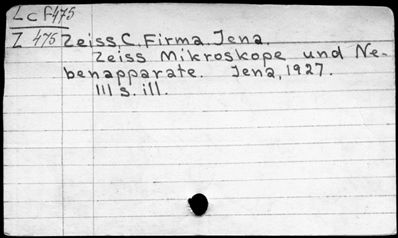 Lc f475
Z 475 Zeiss, C. Firma. Jena.
Zeiss Mikroskope und Ne-
benapparate. Jena, 1927.
111 s. ill.